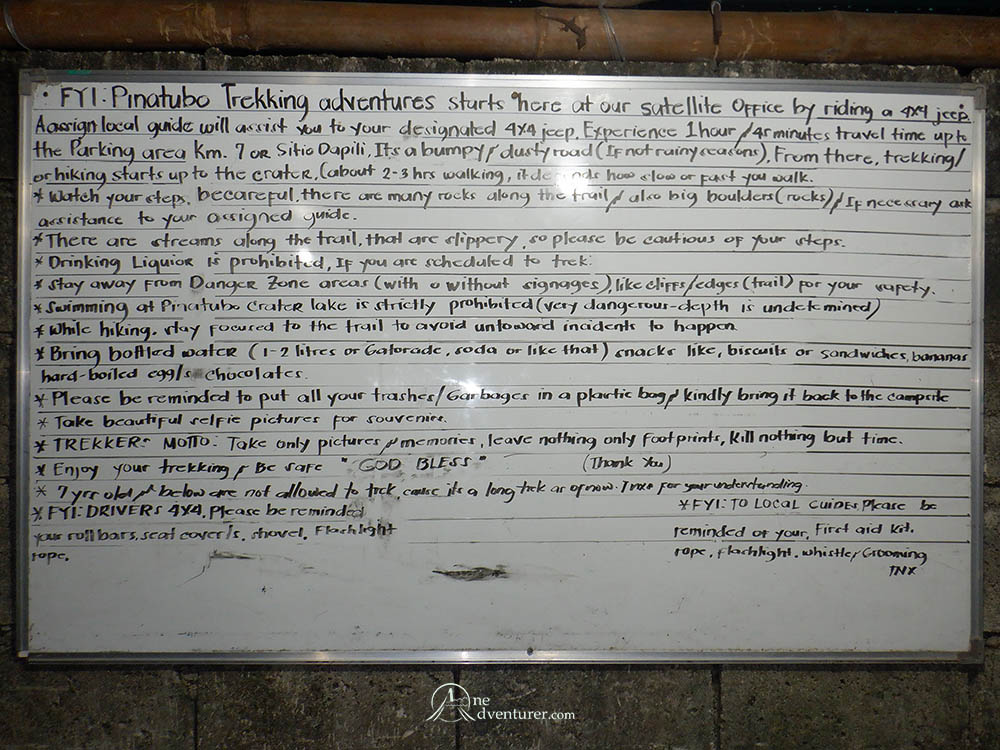 • FYI: Pinatubo Trekking adventures starts here at our satellite Office by riding a 4x4 jeep.
A assign local guide will assist you to your designated 4x4 jeep. Experience 1 hour / 45 minutes travel time up to
the Parking area Km. 7 or Sitio Dapili, Its a bumpy & dusty road (If not rainy seasons), From there, trekking/
or hiking starts up to the crater, (about 2-3 hrs walking, it depends how slow or fast you walk.
* Watch your steps, becareful, there are many rocks along the trail, & also big boulders (rocks), & If necessary ask
assistance to your assigned guide.
* There are streams along the trail, that are slippery, so please be cautious of your steps.
* Drinking Liquior is prohibited, If you are scheduled to trek.
* stay away from Danger Zone areas (with o without signages), like cliffs/edges (trail) for your safety.
* Swimming at Pinatubo Crater lake is strictly prohibited (very dangerous-depth is undetemined)
* While hiking, stay focused to the trail to avoid untoward incidents to happen.
* Bring bottled water (1-2 litres or Gatorade, soda or like that) snacks like, biscuits or sandwiches, bananas
hard-boiled egg/s chocolates.
* Please be reminded to put all your trashes/Garbages in a plastic bag, & kindly bring it back to the campsite
* Take beautiful selfie pictures for souvenirs.
* TREKKERS MOTTO: Take only pictures & memories, leave nothing only footprints, Kill nothing but time.
* Enjoy your trekking & Be safe "GOD BLESS" (Thank You)
* 7 yrs old & below are not allowed to trek, cause its a long trek as of now. Tnxs for your understanding.
* FYI: DRIVERS 4X4, Please be reminded
your roll bars, seat cover/s, shovel, Flashlight
rope.
* FYI: TO LOCAL GUIDES, Please be
reminded of your, First aid kit.
rope, flashlight, whistle, & Grooming
TNX
One
Adventurer.com